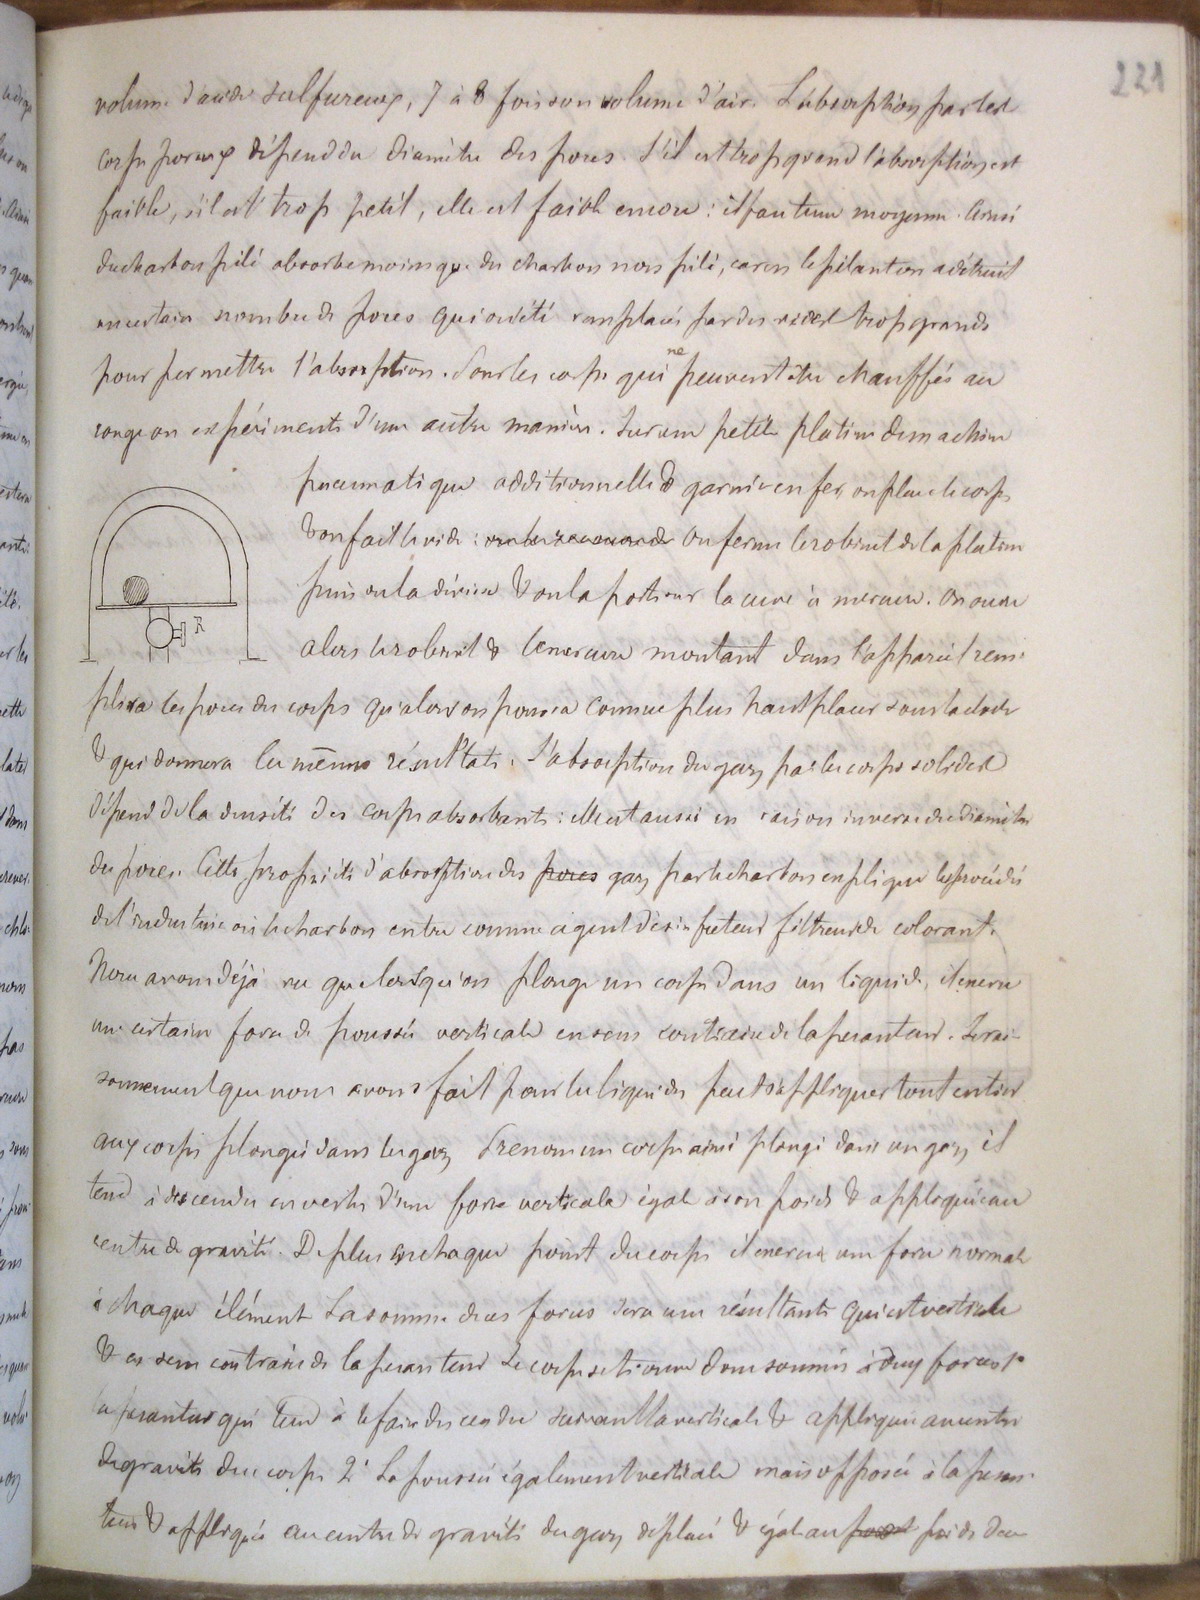 221
volume d'acide sulfureux, 7 à 8 fois son volume d'air. L'absorption par les
corps poreux dépend du diamètre des pores. S'il est trop grand l'absorption est
faible, s'il est trop petit, elle est faible encore : il faut une moyenne. Ainsi
du charbon pilé absorbe moins que du charbon non pilé, car en le pilant on a détruit
un certain nombre de pores qui ont été remplacés par des vides trop grands
pour permettre l'absorption. Pour les corps qui ne peuvent être chauffés au
rouge on expérimente d'une autre manière. Sur une petite platine de machine
pneumatique additionnelle & garnie en fer, on place le corps
& on fait le vide : on ferme le robinet de la platine
puis on la dévisse & on la porte sur la cuve à mercure. On ouvre
alors le robinet & le mercure montant dans l'appareil rem-
R
plira les pores du corps qu'alors on pourra comme plus haut placer sous la cloche
& qui donnera les mêmes résultats. L'absorption des gaz par les corps solides
dépend de la densité des corps absorbants : elle est aussi en raison inverse du diamètre
des pores. Cette propriété d'absorption des pores gaz par le charbon explique les procédés
de l'industrie où le charbon entre comme agent désinfecteur filtreur décolorant.
Nous avons déjà vu que lorsqu'on plonge un corps dans un liquide, il exerce
une certaine force de poussée verticale en sens contraire de la pesanteur. Le rai-
sonnement que nous avons fait pour les liquides peut s'appliquer tout entier
aux corps plongés dans les gaz. Prenons un corps ainsi plongé dans un gaz, il
tend à descendre en vertu d'une force verticale égale à son poids & appliquée au
centre de gravité. De plus sur chaque point du corps il exerce une force normale
à chaque élément. La somme de ces forces sera une résultante qui est verticale
& en sens contraire de la pesanteur. Le corps se trouve donc soumis à deux forces 1°
la pesanteur qui tend à le faire descendre suivant la verticale & appliquée au centre
de gravité du corps 2° La poussée également verticale mais opposée à la pesan-
teur & appliquée au centre de gravité du gaz déplacé & égale au poids du